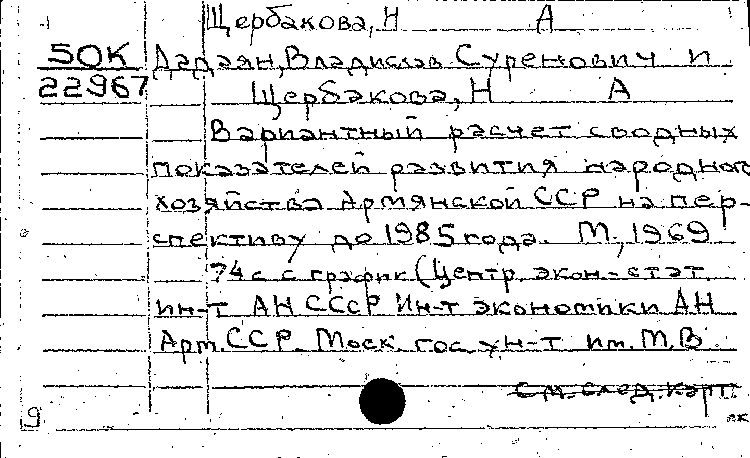 Щербакова, Н А
50К Дадаян, Владислав Суренович и
22967 Щербакова, Н А
Вариантный расчет сводных
показателей развития народного
хозяйства Армянской ССР на пер-
спективу до 1985 года. М., 1969
74 с с график (Центр. экон.-стат.
ин-т АН СССР Ин-т экономики АН
Арм. ССР. Моск. гос. ун-т им. М.В.
см. след. карт.
9